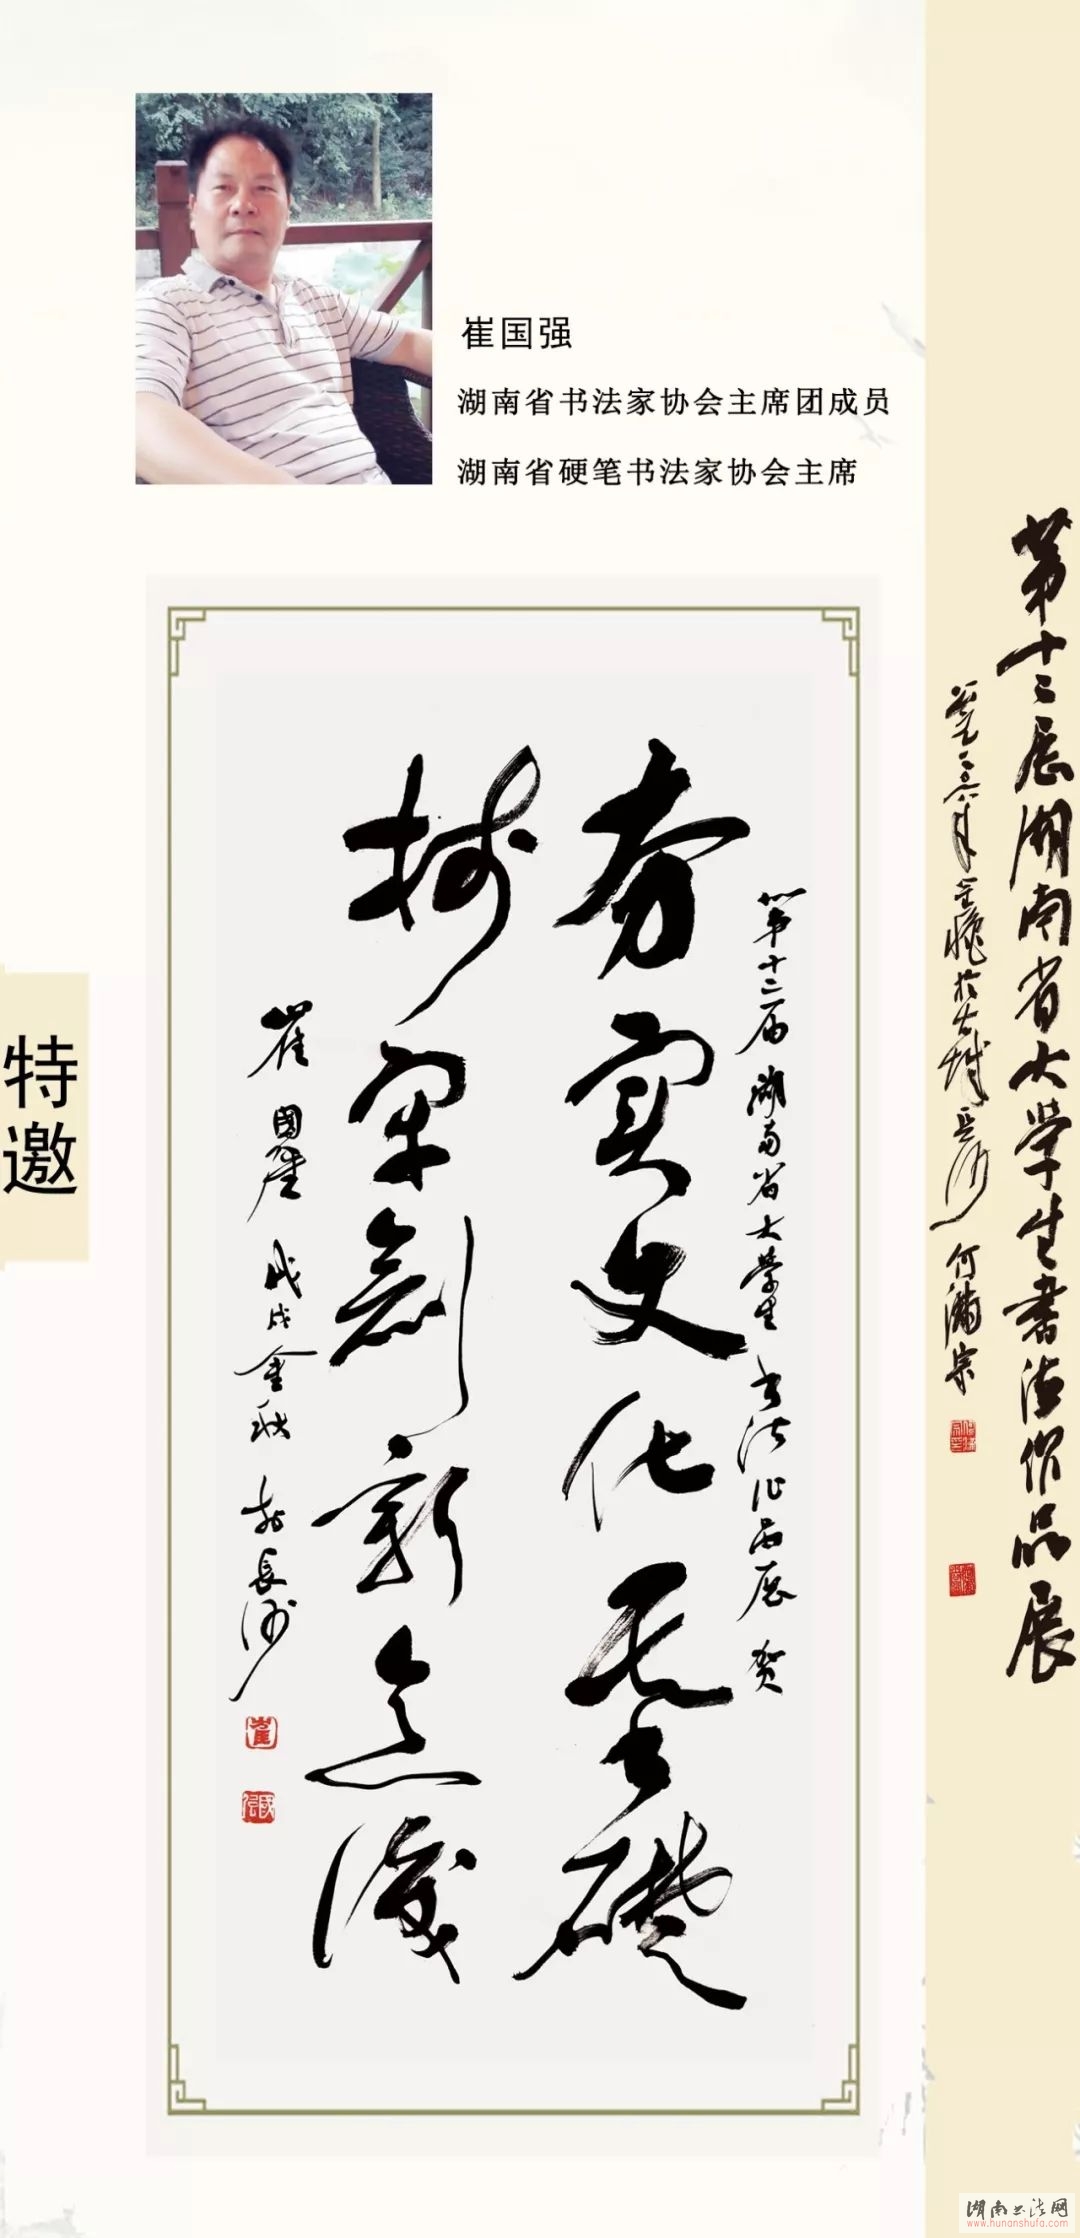 崔国强
湖南省书法家协会主席团成员
湖南省硬笔书法家协会主席
特邀
第十二届湖南省大学生書法作品展
於古城長沙 何满宗
第十二届湖南省大学生书法作品展 贺
夯实文化基础
树牢創新意識
崔國强 戊戌金秋於長沙
崔
湖南书法网
www.hunanshufa.com